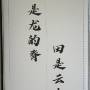 田是云
是龙的脊